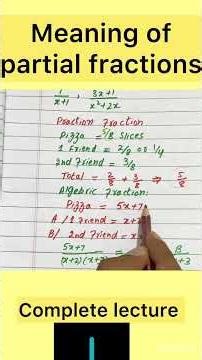 Meaning of
partial fractions
1/x+1 , 3x+1/x²+2x
Fraction
Pizza = 5/8 Slices
1 Friend = 2/8 or 1/4
2nd Friend = 3/8
Total = 2/8 + 3/8 ⇒ 5/8
Algebric Fraction:
Pizza = 5x+7
A/ 1 Friend = x+
B/ 2nd Friend = x
5x+7/(x+2)(x+3) = B/x+3
Complete lecture